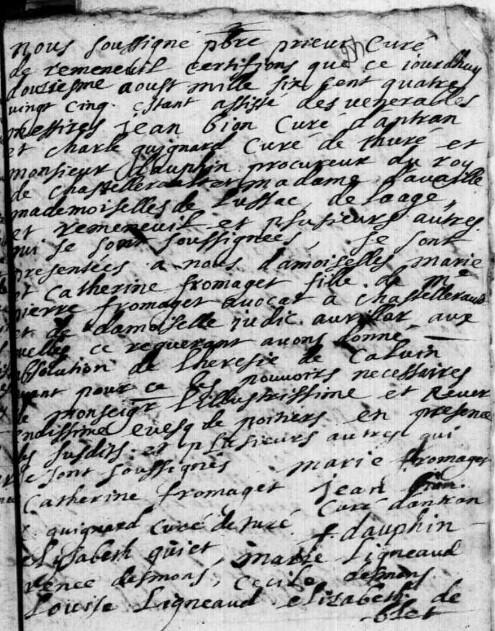 nous soussigné pbre prieur curé
de remeneuil certifions que ce iourdhuy
aoust mille six cent quatre
vingt cinq estant assisté des venerables
messires jean Gion curé dantran
et charle quignard curé de thuré et
monsieur dauphin procureur du roy
de Chastelleraut et madame davaille
mademoiselles de Lussac, de laage,
et remeneuil et plusieurs autres
qui se sont soussignées, se sont
presentées a nous damoiselles marie
et Catherine fromaget fille de Me
pierre fromaget avocat a Chastelleraud
et de damoiselle iudic aux
quelles ce requerant avons donné
absolution de lheresie de Caluin
ayant pour ce les pouvoirs necessaires
de monseigr Lillustrissime et Rever
endissime evesq de poitiers en presence
les susdits et plusieurs autres qui
se sont soussignés marie fromaget
Catherine fromaget jean Gion
curé dantran
quignard curé de turé. f dauphin
elisabeth quiet, marie Ligneaud
renee desmons, Cecile desmons
Louise Ligneaud elizabeth de
blet